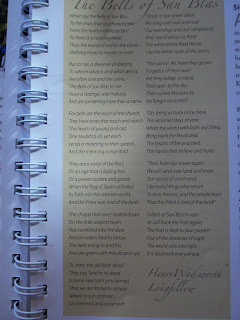 The Bells of San Blas
What say the Bells of San Blas
To the ships that southward pass
From the harbor of Mazatlan?
To them it is nothing more
Than the sound of surf on the shore,
Nothing more to master or man.
But to me, a dreamer of dreams,
To whom what is and what seems
Are often one and the same,
The Bells of San Blas to me
Have a strange, wild melody
And are something more than a name.
For bells are the voice of the church;
They have tones that touch and search
The hearts of young and old;
One sound to all, yet each
Lends a meaning to their speech,
And the meaning is manifold.
They are a voice of the Past,
Of an age that is fading fast,
Of a power austere and grand;
When the flag of Spain unfurled
Its folds o'er this western world,
And the Priest was lord of the land.
The chapel that once looked down
On the little seaport town
Has crumbled into the dust;
And on oaken beams below
The bells swing to and fro,
And are green with mould and rust.
"Is, then, the old faith dead,"
They say, "and in its stead
Is some new faith proclaimed,
That we are forced to remain
Naked to sun and rain,
Unsheltered and ashamed?
"Once in our tower aloof
We rang over wall and roof
Our warnings and our complaints;
And round about us there
The white doves filled the air,
Like the white souls of the saints.
"The saints! Ah, have they grown
Forgetful of their own?
Are they asleep, or dead,
That open to the sky
Their ruined Missions lie,
No longer tenanted?
"Oh, bring us back once more
The vanished days of yore,
When the world with faith was filled;
Bring back the fervid zeal,
The hearts of fire and steel,
The hands that believe and build.
"Then from our tower again
We will send over land and main
Our voices of command,
Like exiled kings who return
To their thrones, and the people learn
That the Priest is lord of the land!"
O Bells of San Blas in vain
Ye call back the Past again;
The Past is deaf to your prayer!
Out of the shadows of night
The world rolls into light;
It is daybreak everywhere.
Henry Wadsworth
Longfellow